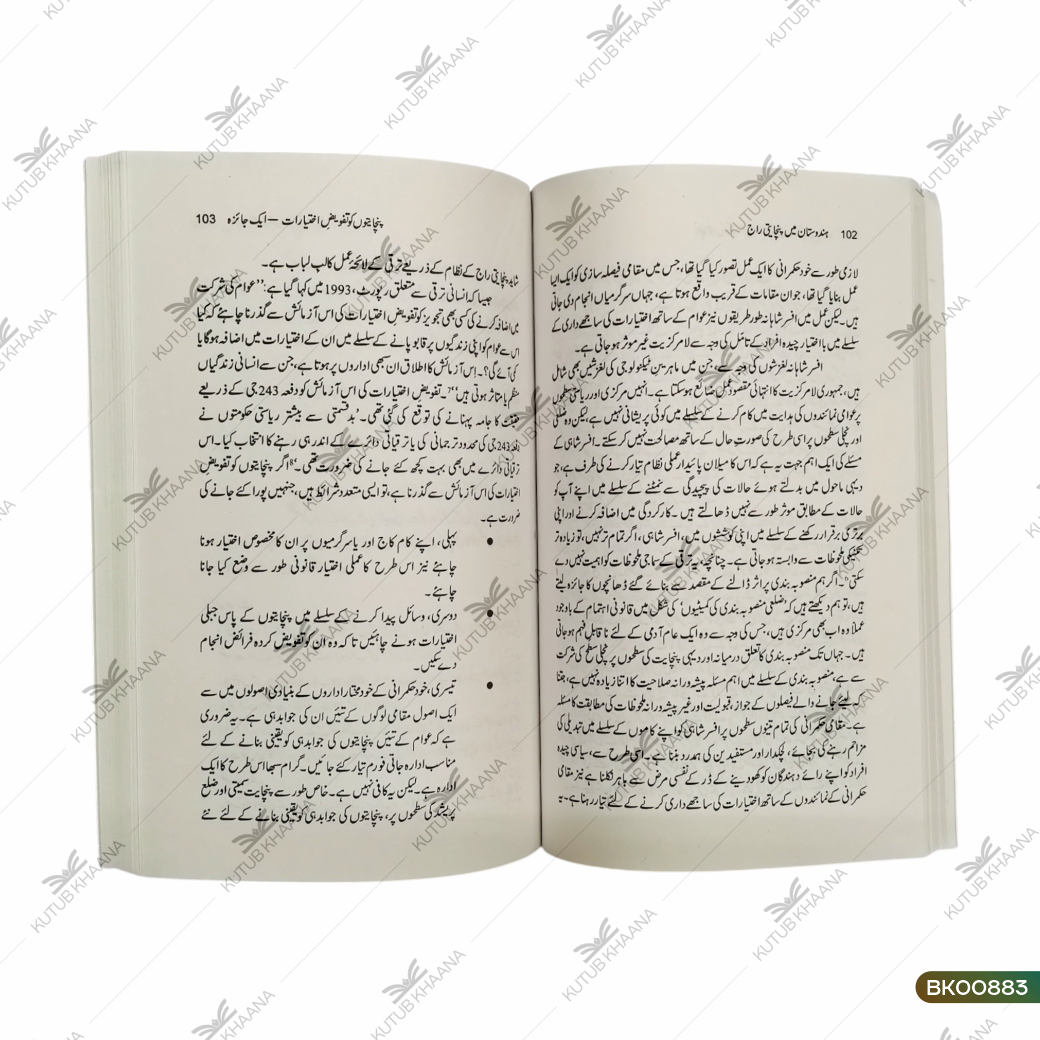 102 ہندوستان میں پنچایتی راج
لازمی طور سے خود حکمرانی کا ایک عمل تصور کیا گیا تھا، جس میں مقامی فیصلہ سازی کو ایک ایسا
عمل بنایا گیا تھا، جو ان مقامات کے قریب واقع ہوتا ہے، جہاں سرگرمیاں انجام دی جاتی
ہیں۔ لیکن عمل میں افسر شاہانہ طور طریقوں نیز عوام کے ساتھ اختیارات کی ساجھے داری کے
سلسلے میں بااختیار چیدہ افراد کے تامل کی وجہ سے لامرکزیت غیر موثر ہو جاتی ہے۔
افسر شاہانہ لغزشوں کی وجہ سے، جن میں ماہرین ٹیکنولوجی کی لغزشیں بھی شامل
ہیں، جمہوری لامرکزیت کا انتہائی مقصود عمل ضائع ہو سکتا ہے۔ انہیں مرکزی اور ریاستی سطحوں
پر عوامی نمائندوں کی ہدایت میں کام کرنے کے سلسلے میں کوئی پریشانی نہیں ہے، لیکن وہ ضلعی
اور نچلی سطحوں پر اسی طرح کی صورتِ حال کے ساتھ مصالحت نہیں کر سکتے۔ افسر شاہی کے
مسئلے کی ایک اہم جہت یہ ہے کہ اس کا میلان پائیدار عملی نظام تیار کرنے کی طرف ہے، جو
دیہی ماحول میں بدلتے ہوئے حالات کی پیچیدگی سے نمٹنے کے سلسلے میں اپنے آپ کو
حالات کے مطابق موثر طور سے نہیں ڈھالتے ہیں۔ کارکردگی میں اضافہ کرنے اور اپنی
برتری برقرار رکھنے کے سلسلے میں اپنی کوششوں میں، افسر شاہی، اگر تمام تر نہیں، تو زیادہ تر
تکنیکی ملحوظات سے وابستہ ہو جاتی ہے۔ چنانچہ، یہ ترقی کے سماجی ملحوظات کو اہمیت نہیں دے
سکتی۔ اگر ہم منصوبہ بندی پر اثر ڈالنے کے مقصد سے بنائے گئے ڈھانچوں کا جائزہ لیتے
ہیں، تو ہم دیکھتے ہیں کہ 'ضلعی منصوبہ بندی کی کمیٹیوں' کی شکل میں قانونی اہتمام کے باوجود
عملاً وہ اب بھی مرکزی ہیں، جس کی وجہ سے وہ ایک عام آدمی کے لئے ناقابلِ فہم ہو جاتی
ہیں۔ جہاں تک منصوبہ بندی کا تعلق درمیانہ اور دیہی پنچایت کی سطحوں پر نچلی سطح کی شرکت
سے ہے، منصوبہ بندی کے سلسلے میں اہم مسئلہ پیشہ ورانہ صلاحیت کا اتنا زیادہ نہیں ہے، جتنا
کہ لئے جانے والے فیصلوں کے جواز، قبولیت اور غیر پیشہ ورانہ ملحوظات کی مطابقت کا مسئلہ
ہے۔ مقامی حکمرانی کی تمام تینوں سطحوں پر افسر شاہی کو اپنے کاموں کے سلسلے میں تبدیلی کی
مزاحم رہنے کی بجائے، لچکدار اور مستفیدین کی ہمدرد بننا ہے۔ اسی طرح سے، سیاسی چیدہ
افراد کو اپنے رائے دہندگان کو کھو دینے کے ڈر کے نفسی مرض سے باہر نکلنا ہے نیز مقامی
حکمرانی کے نمائندوں کے ساتھ اختیارات کی ساجھے داری کرنے کے لئے تیار رہنا ہے۔ یہ
پنچایتوں کو تفویضِ اختیارات — ایک جائزہ 103
شاید پنچایتی راج کے نظام کے ذریعے ترقی کے لائحۂ عمل کا لب لباب ہے۔
جیسا کہ انسانی ترقی سے متعلق رپورٹ، 1993 میں کہا گیا ہے: ''عوام کی شرکت
میں اضافہ کرنے کی کسی بھی تجویز کو تفویضِ اختیارات کی اس آزمائش سے گذرنا چاہئے کہ کیا
اس سے عوام کو اپنی زندگیوں پر قابو پانے کے سلسلے میں ان کے اختیارات میں اضافہ ہو گا یا
کمی آئے گی؟۔ اس آزمائش کا اطلاق ان سبھی اداروں پر ہوتا ہے، جن سے انسانی زندگیاں
منظم یا متاثر ہوتی ہیں''۔ تفویضِ اختیارات کی اس آزمائش کو دفعہ 243 جی کے ذریعے
حقیقت کا جامہ پہنانے کی توقع کی گئی تھی۔ 'بدقسمتی سے بیشتر ریاستی حکومتوں نے
دفعہ 243 جی کی محدود تر جمانی کی یا ترقیاتی دائرے کے اندر ہی رہنے کا انتخاب کیا۔ اس
ترقیاتی دائرے میں بھی بہت کچھ کئے جانے کی ضرورت تھی۔'8 اگر پنچایتوں کو تفویضِ
اختیارات کی اس آزمائش سے گذرنا ہے، تو ایسی متعدد شرائط ہیں، جنہیں پورا کئے جانے کی
ضرورت ہے۔
• پہلی، اپنے کام کاج اور یا سرگرمیوں پر ان کا مخصوص اختیار ہونا
چاہئے نیز اس طرح کا عملی اختیار قانونی طور سے وضع کیا جانا
چاہئے۔
• دوسری، وسائل پیدا کرنے کے سلسلے میں پنچایتوں کے پاس جبلی
اختیارات ہونے چاہئیں تاکہ وہ ان کو تفویض کردہ فرائض انجام
دے سکیں۔
• تیسری، خود حکمرانی کے خود مختار اداروں کے بنیادی اصولوں میں سے
ایک اصول مقامی لوگوں کے تئیں ان کی جوابدہی ہے۔ یہ ضروری
ہے کہ عوام کے تئیں پنچایتوں کی جوابدہی کو یقینی بنانے کے لئے
مناسب ادارہ جاتی فورم تیار کئے جائیں۔ گرام سبھا اس طرح کا ایک
ادارہ ہے۔ لیکن یہ کافی نہیں ہے۔ خاص طور سے پنچایت سمیتی اور ضلع
پریشد کی سطحوں پر، پنچایتوں کی جوابدہی کو یقینی بنانے کے لئے نئے
KUTUB KHAANA
BK00883